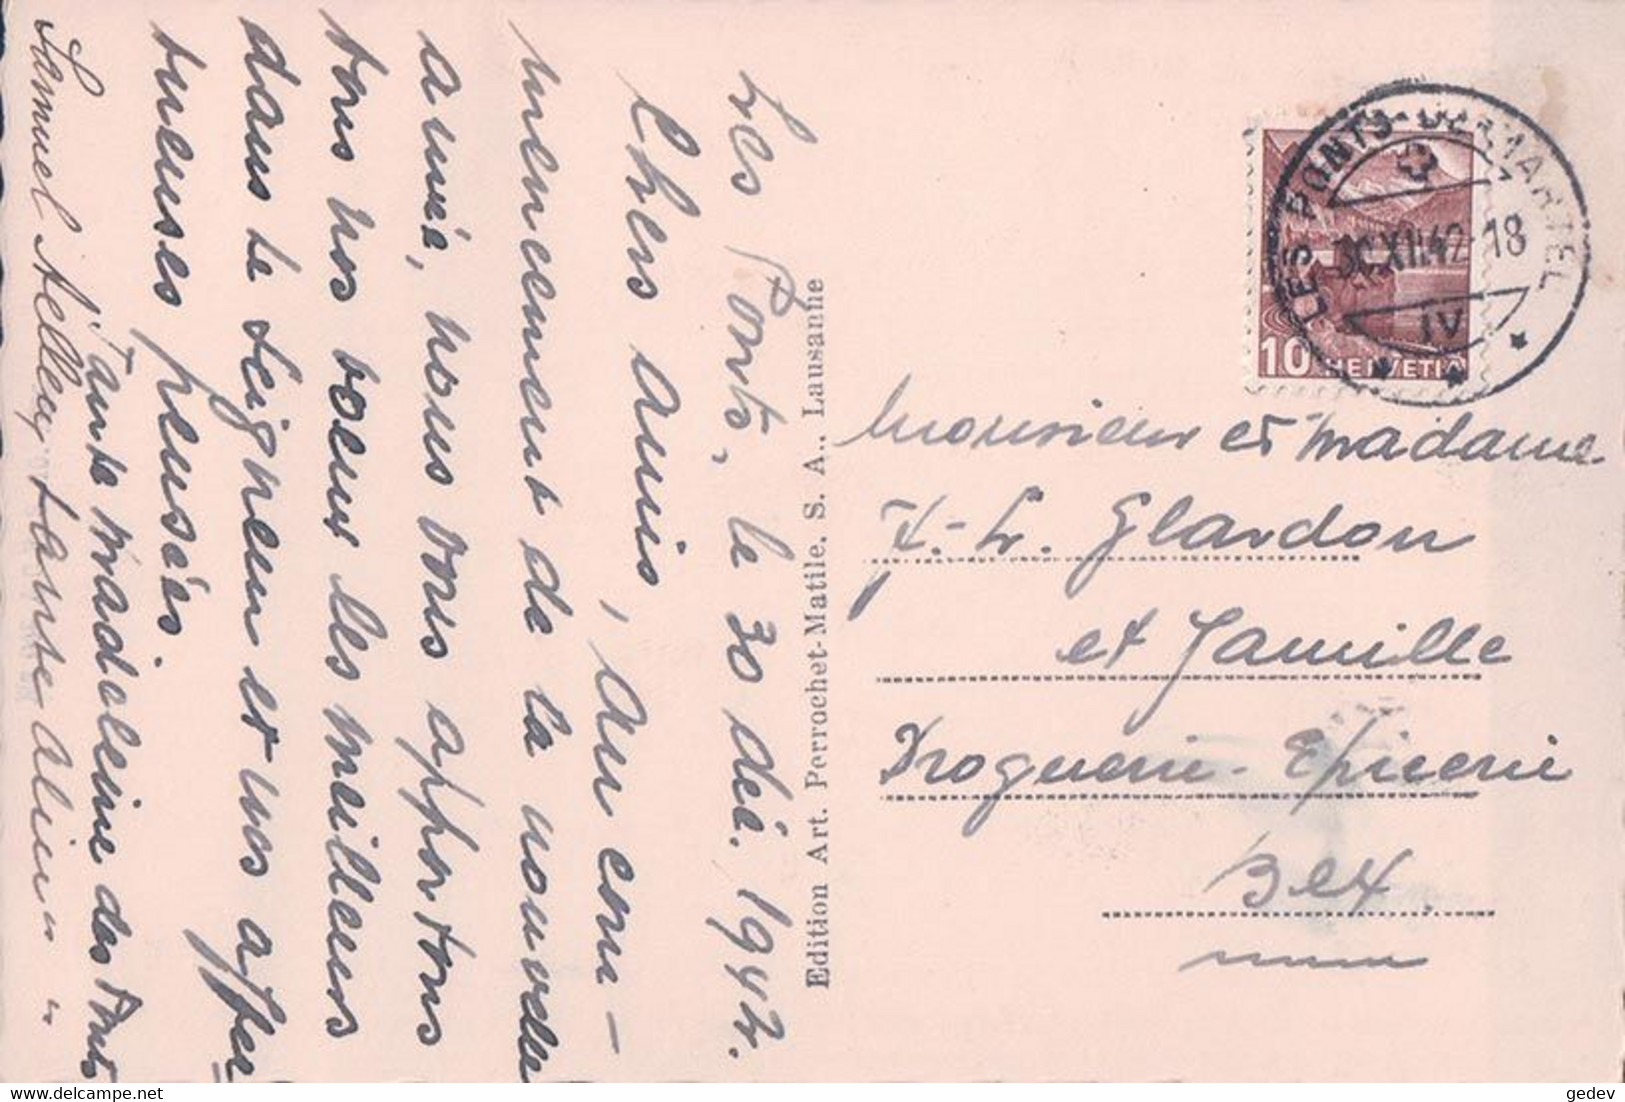 Les Ponts, le 30 déc. 1942.
Chers amis, Au com-
mencement de la nouvelle
année, nous vous apportons
tous nos voeux les meilleurs
dans le Seigneur et nos affec
tueuses pensées.
Tante Madeleine des Ponts
Samuel tante Aline
Edition Art. Perrochet-Matile. S. A., Lausanne
LES PONTS-DE-MARTEL
30 XII 42-18
IV
10 HELVETIA
Monsieur et Madame
Glardon
et famille
Droguerie-Epicerie
Bex.
gedev